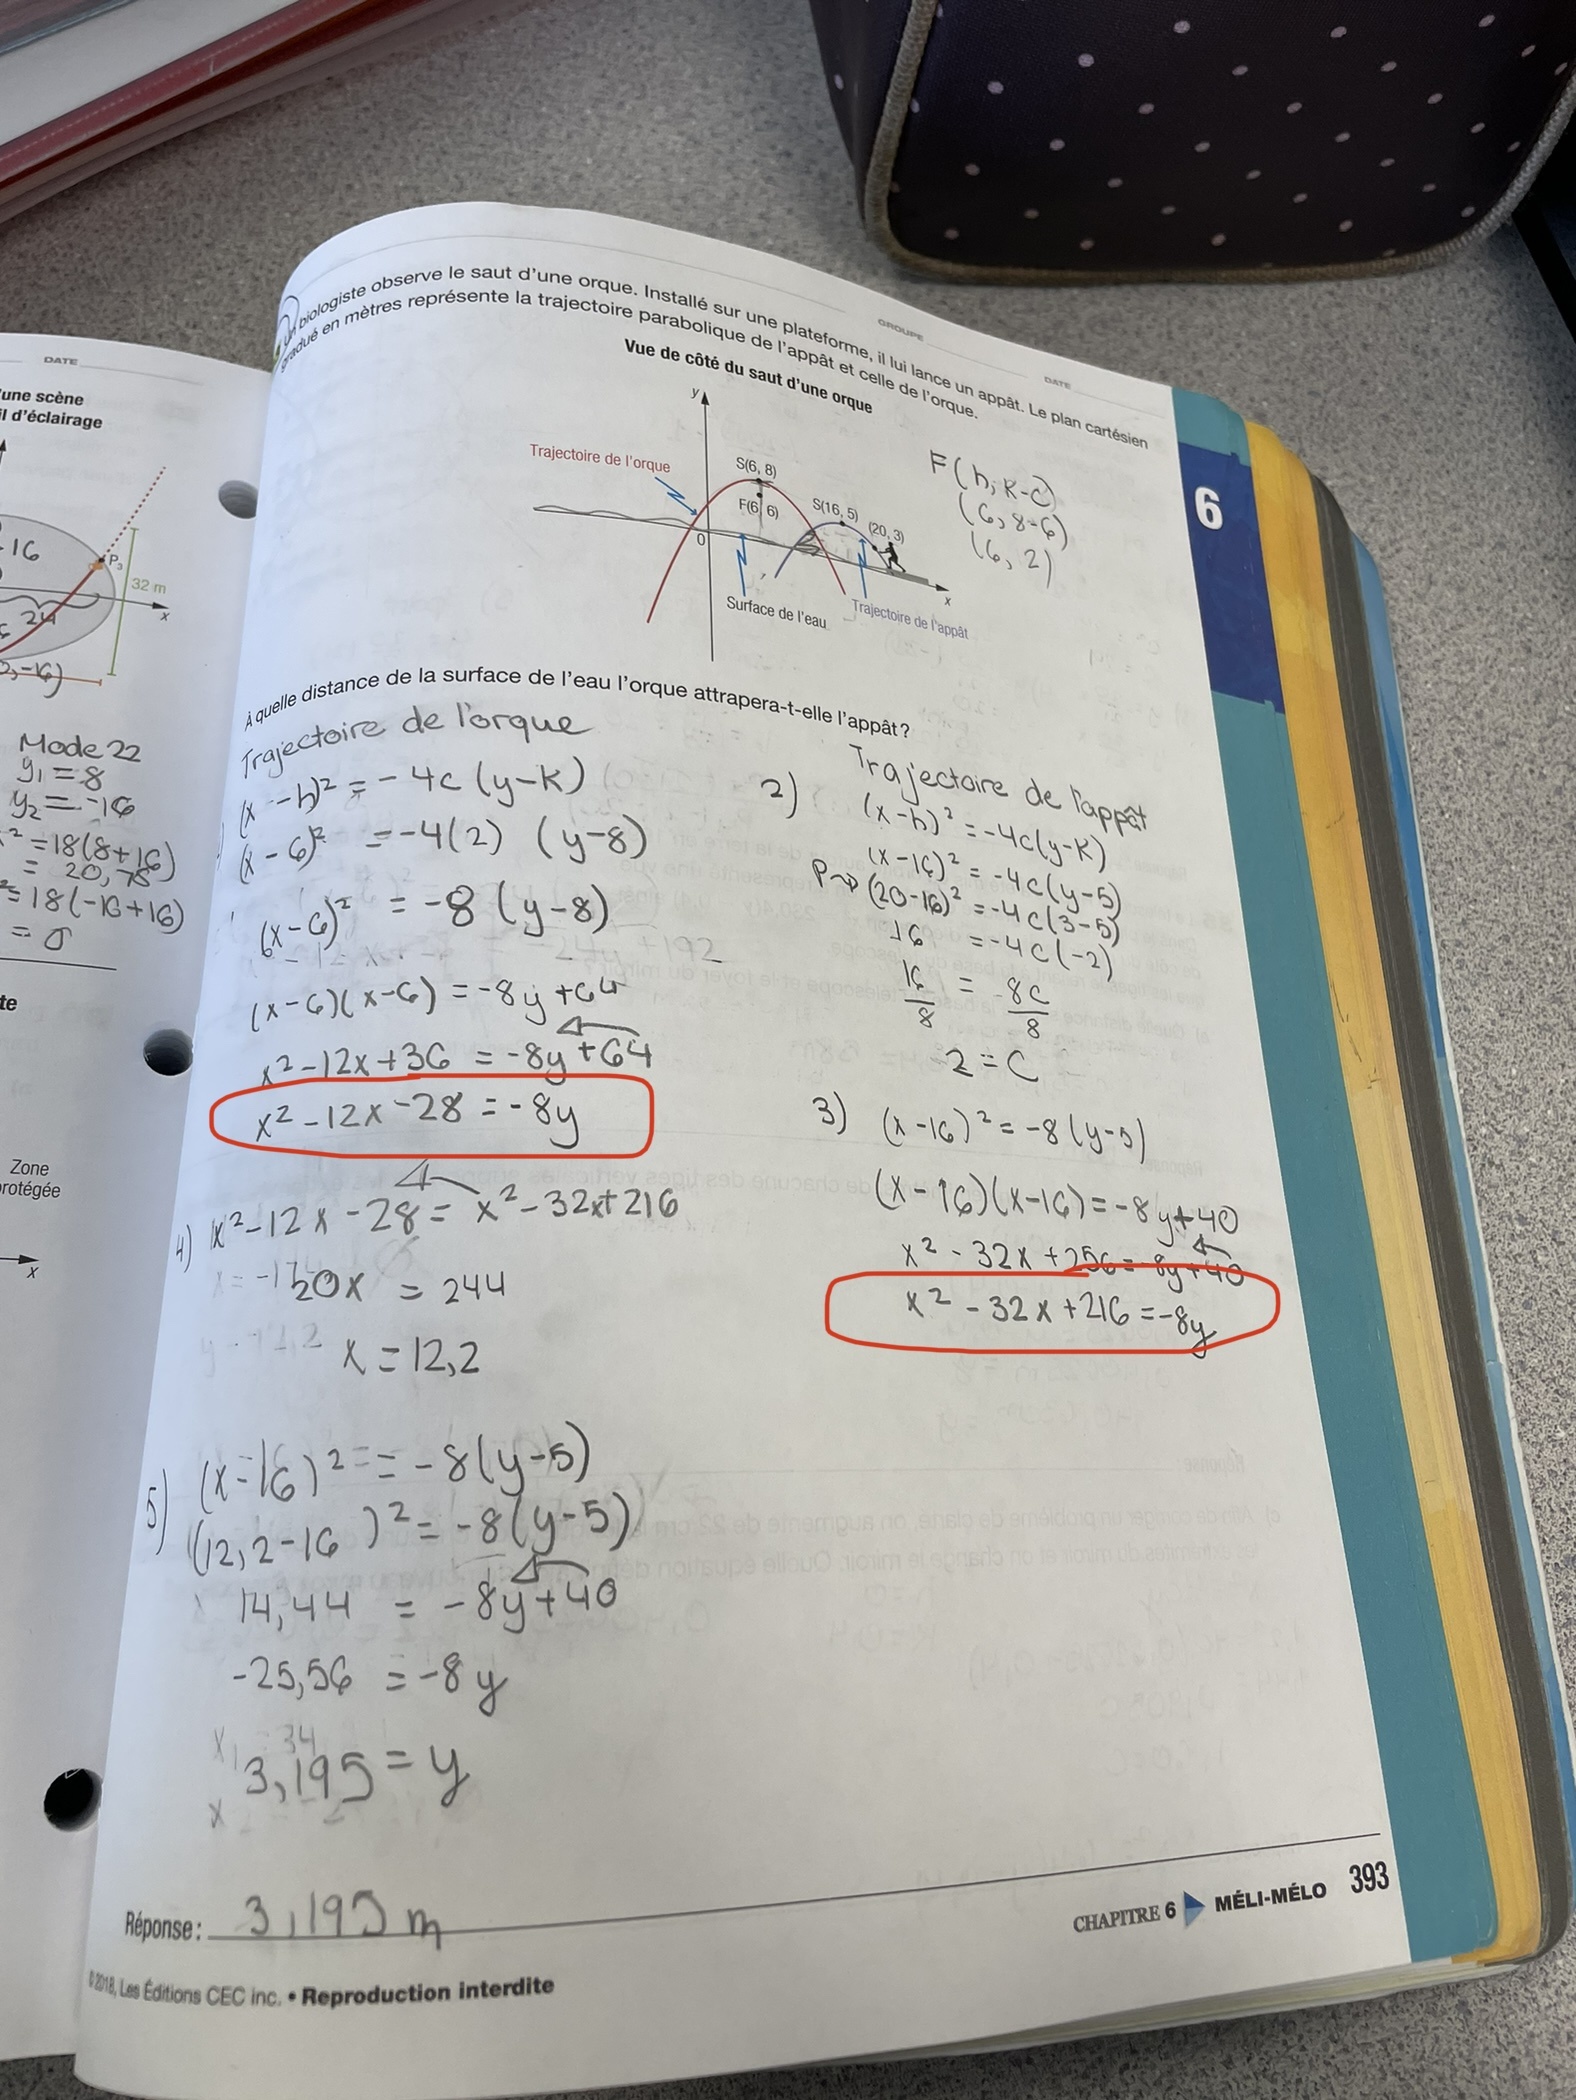 DATE
'une scène
il d'éclairage
16
P₃
32 m
24
x
, -16)
Mode 22
y₁ = 8
y₂ = -16
² = 18(8+16)
= 20,78
² = 18(-16+16)
= 0
te
Zone
rotégée
x
GROUPE
DATE
Un biologiste observe le saut d'une orque. Installé sur une plateforme, il lui lance un appât. Le plan cartésien
gradué en mètres représente la trajectoire parabolique de l'appât et celle de l'orque.
Vue de côté du saut d'une orque
y
Trajectoire de l'orque
S(6, 8)
F(6, 6)
S(16, 5)
(20, 3)
0
x
Surface de l'eau
Trajectoire de l'appât
F(h, k-c)
(6, 8-6)
(6, 2)
6
À quelle distance de la surface de l'eau l'orque attrapera-t-elle l'appât?
Trajectoire de l'orque
(x-h)² = -4c(y-k)
(x-6)² = -4(2) (y-8)
(x-6)² = -8(y-8)
(x-6)(x-6) = -8y+64
x²-12x+36 = -8y+64
x²-12x-28 = -8y
4) x²-12x-28 = x²-32x+216
20x = 244
x = 12,2
5) (x-16)² = -8(y-5)
(12,2-16)² = -8(y-5)
14,44 = -8y+40
-25,56 = -8y
3,195 = y
2) Trajectoire de l'appât
(x-h)² = -4c(y-k)
(x-16)² = -4c(y-5)
P→ (20-16)² = -4c(3-5)
16 = -4c(-2)
16/8 = 8c/8
2 = c
3) (x-16)² = -8(y-5)
(x-16)(x-16) = -8y+40
x² - 32x + 256 = -8y+40
x² - 32x + 216 = -8y
Réponse: 3,195 m
CHAPITRE 6 MÉLI-MÉLO 393
© 2018, Les Éditions CEC inc. • Reproduction interdite